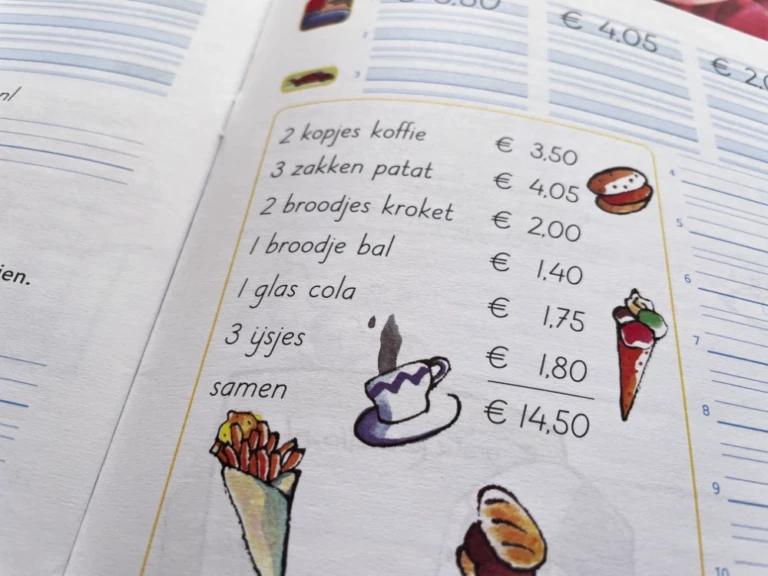 € 4.05
2 kopjes koffie € 3,50
3 zakken patat € 4,05
2 broodjes kroket € 2,00
1 broodje bal € 1,40
1 glas cola € 1,75
3 ijsjes € 1,80
samen € 14,50
4
5
6
7
8
9
10